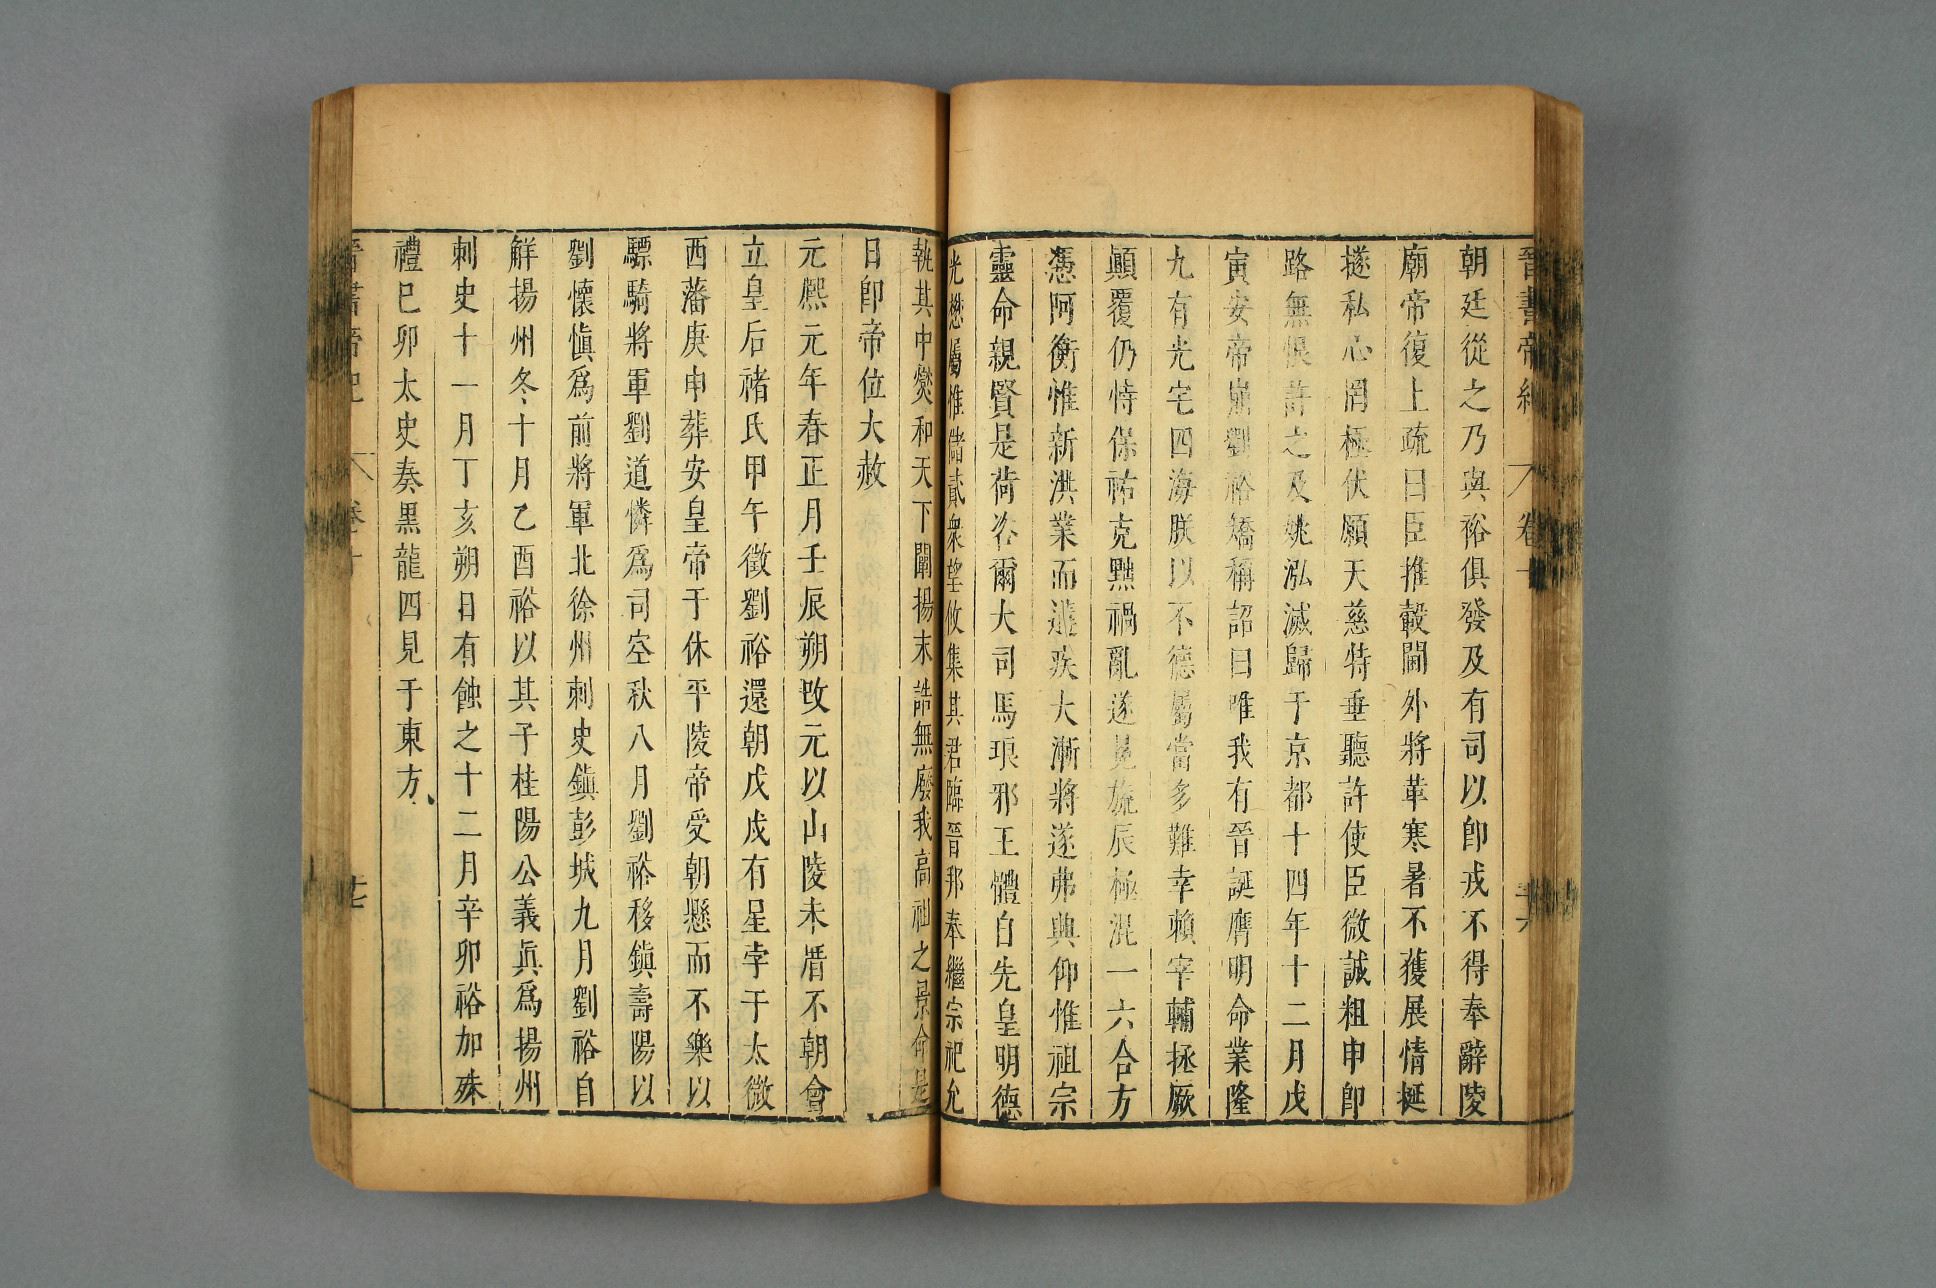 晉書帝紀 卷十 六
朝廷從之乃與裕俱發及有司以卽戎不得奉辭陵
廟帝復上疏曰臣推轂閫外將革寒暑不獲展情埏
㸂私心罔極伏願天慈特垂聽許使臣微誠粗申卽
路無恨許之及姚泓滅歸于京都十四年十二月戊
寅安帝崩劉裕矯稱詔曰唯我有晉誕膺明命業隆
九有光宅四海朕以不德屬當多難幸賴宰輔拯厥
顚覆仍恃保祐克黜禍亂遂冕旒辰極混一六合方
憑阿衡惟新洪業而遘疾大漸將遂弗興仰惟祖宗
靈命親賢是荷咨爾大司馬琅邪王體自先皇明德
光懋屬惟儲貳衆望攸集其君臨晉邦奉繼宗祀允
執其中燮和天下闡揚末誥無廢我高祖之景命是
日卽帝位大赦
元熙元年春正月壬辰朔改元以山陵未厝不朝會
立皇后褚氏甲午徵劉裕還朝戊戌有星孛于太微
西藩庚申葬安皇帝于休平陵帝受朝懸而不樂以
驃騎將軍劉道憐爲司空秋八月劉裕移鎭壽陽以
劉懷愼爲前將軍北徐州刺史鎭彭城九月劉裕自
解揚州冬十月乙酉裕以其子桂陽公義眞爲揚州
刺史十一月丁亥朔日有蝕之十二月辛卯裕加殊
禮已卯太史奏黑龍四見于東方
晉書帝紀 卷十 七